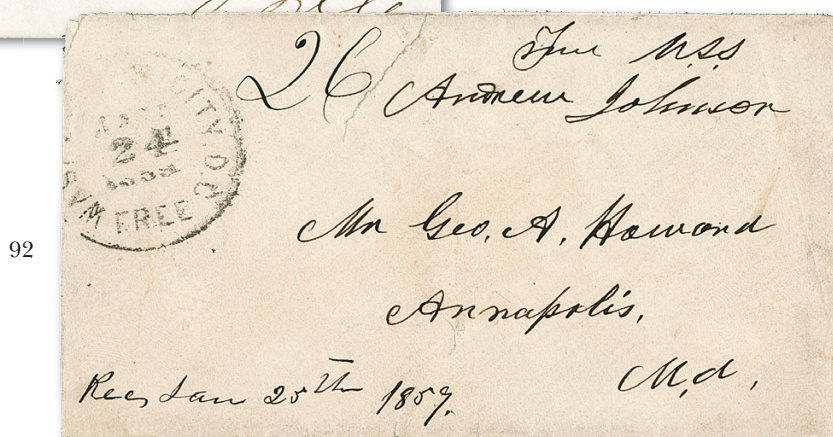 26
Free U.S.S
Andrew Johnson
CITY. D.C.
24
FREE
Mr Geo. A. Howard
92
Annapolis,
Md,
Rec, Jan 25th 1859.